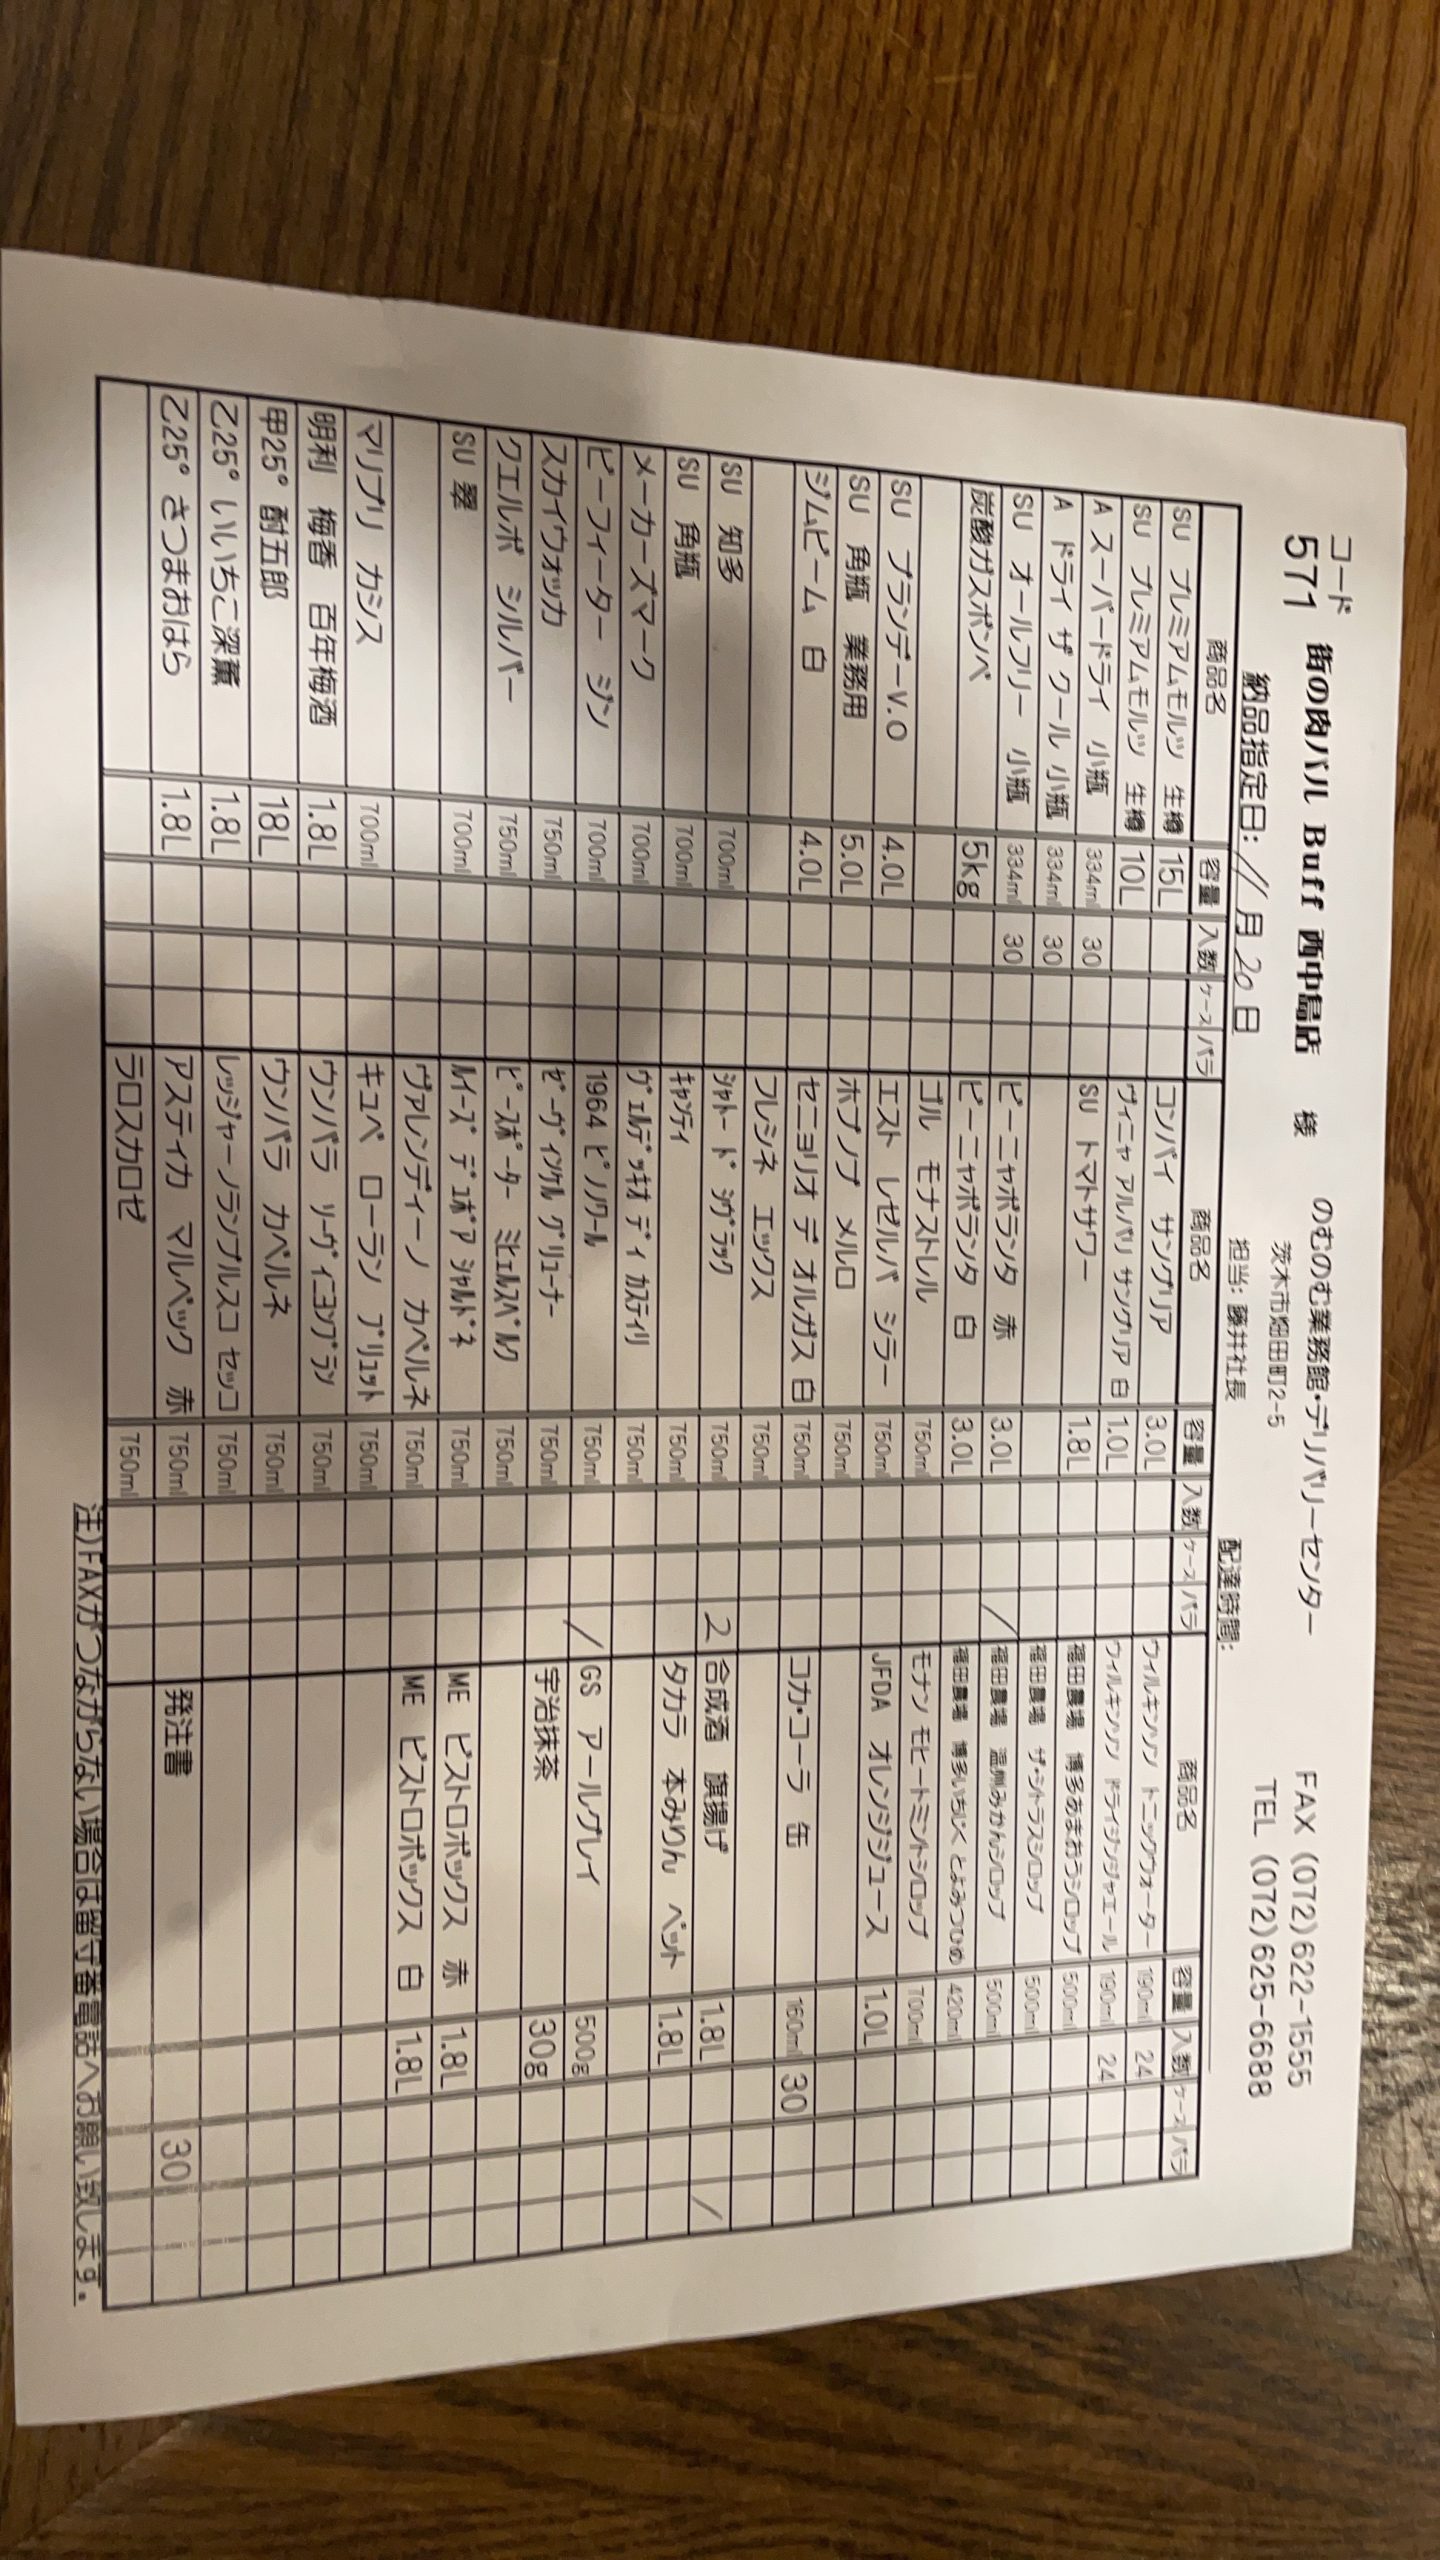 コード
571 街の肉バル Buff 西中島店 様 のむのむ業務館・デリバリーセンター FAX (072)622-1555
茨木市畑田町2-5 TEL (072)625-6688
納品指定日: 11月20日 担当: 藤井社長 配達時間:
商品名 容量 入数 ケース バラ 商品名 容量 入数 ケース バラ 商品名 容量 入数 ケース バラ
SU プレミアムモルツ 生樽 15L コンパイ サングリア 3.0L ウィルキンソン トニックウォーター 190ml 24
SU プレミアムモルツ 生樽 10L ヴィニャ アルバリ サングリア 白 1.0L ウィルキンソン ドライジンジャエール 190ml 24
A スーパードライ 小瓶 334ml 30 SU トマトサワー 1.8L 福田農場 博多あまおうシロップ 500ml
A ドライ ザ クール 小瓶 334ml 30 福田農場 ザ・シトラスシロップ 500ml
SU オールフリー 小瓶 334ml 30 ビーニャボランタ 赤 3.0L / 福田農場 温州みかんシロップ 500ml
炭酸ガスボンベ 5kg ビーニャボランタ 白 3.0L 福田農場 博多いちじく とよみつひめ 420ml
ゴル モナストレル 750ml モナン モヒートミントシロップ 700ml
SU ブランデーV.O 4.0L エスト レゼルバ シラー 750ml JFDA オレンジジュース 1.0L
SU 角瓶 業務用 5.0L ホブノブ メルロ 750ml
ジムビーム 白 4.0L セニョリオ デ オルガス 白 750ml コカ・コーラ 缶 160ml 30
フレシネ エックス 750ml
SU 知多 700ml シャトー ド シヴラック 750ml 2 合成酒 旗揚げ 1.8L /
SU 角瓶 700ml キャンティ 750ml タカラ 本みりん ペット 1.8L
メーカーズマーク 700ml ヴェルデッキオ ディ カスティリ 750ml
ビーフィーター ジン 700ml 1964 ピノノワール 750ml / GS アールグレイ 500g
スカイウォッカ 750ml ゼーヴィンケル グリューナー 750ml 宇治抹茶 30g
クエルボ シルバー 750ml ピースポーター ミヒェルスベルク 750ml
SU 翠 700ml ルイーズ デュボア シャルドネ 750ml ME ビストロボックス 赤 1.8L
ヴァレンディーノ カベルネ 750ml ME ビストロボックス 白 1.8L
マリブリ カシス 700ml キュベ ローラン ブリュット 750ml
明利 梅香 百年梅酒 1.8L ウンバラ ソーヴィニヨンブラン 750ml
甲25° 酎五郎 18L ウンバラ カベルネ 750ml
乙25° いいちこ深薫 1.8L レッジャーノランブルスコ セッコ 750ml
乙25° さつまおはら 1.8L アスティカ マルベック 赤 750ml 発注書 30
ラロスカロゼ 750ml
注)FAXがつながらない場合は留守番電話へお願い致します.